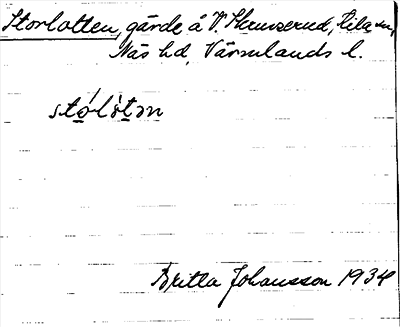 Storlotten, gärde å V. Skruvserud, Kila sn,
Näs hd, Värmlands l.
stólòtən
Britta Johansson 1934